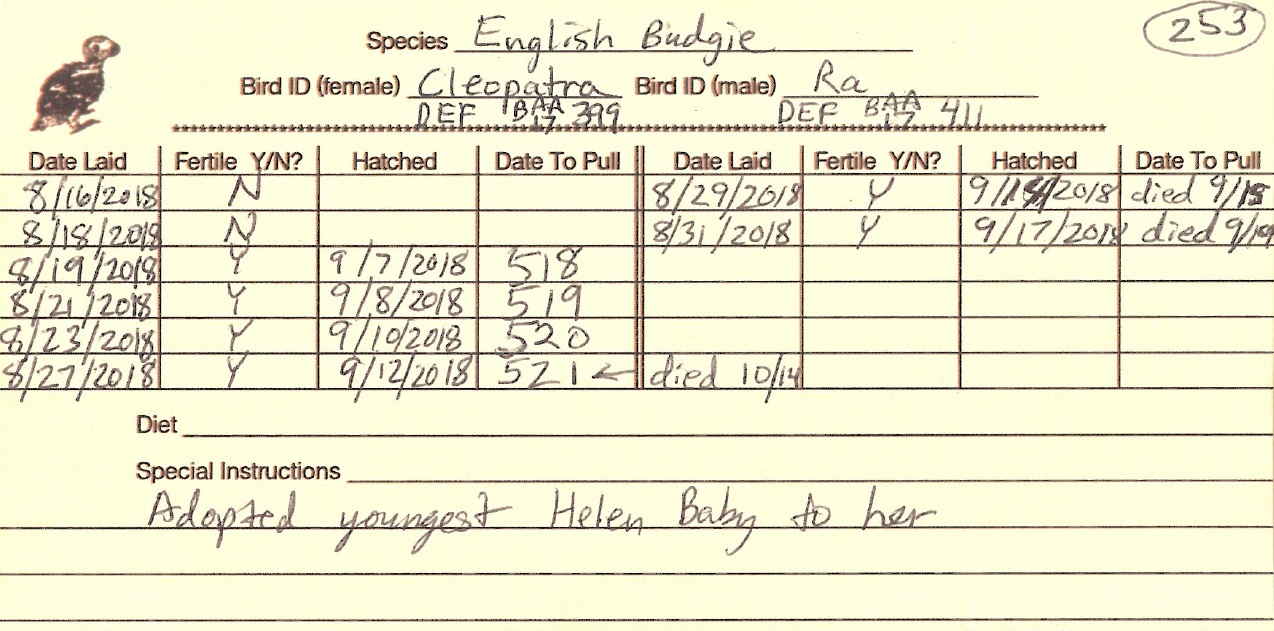 253
Species English Budgie
Bird ID (female) Cleopatra Bird ID (male) Ra
DEF BAA 17 399 DEF BAA 17 411
Date Laid Fertile Y/N? Hatched Date To Pull Date Laid Fertile Y/N? Hatched Date To Pull
8/16/2018 N 8/29/2018 Y 9/14/2018 died 9/15
8/18/2018 N 8/31/2018 Y 9/17/2018 died 9/19
8/19/2018 Y 9/7/2018 518
8/21/2018 Y 9/8/2018 519
8/23/2018 Y 9/10/2018 520
8/27/2018 Y 9/12/2018 521 ← died 10/14
Diet
Special Instructions
Adopted youngest Helen Baby to her